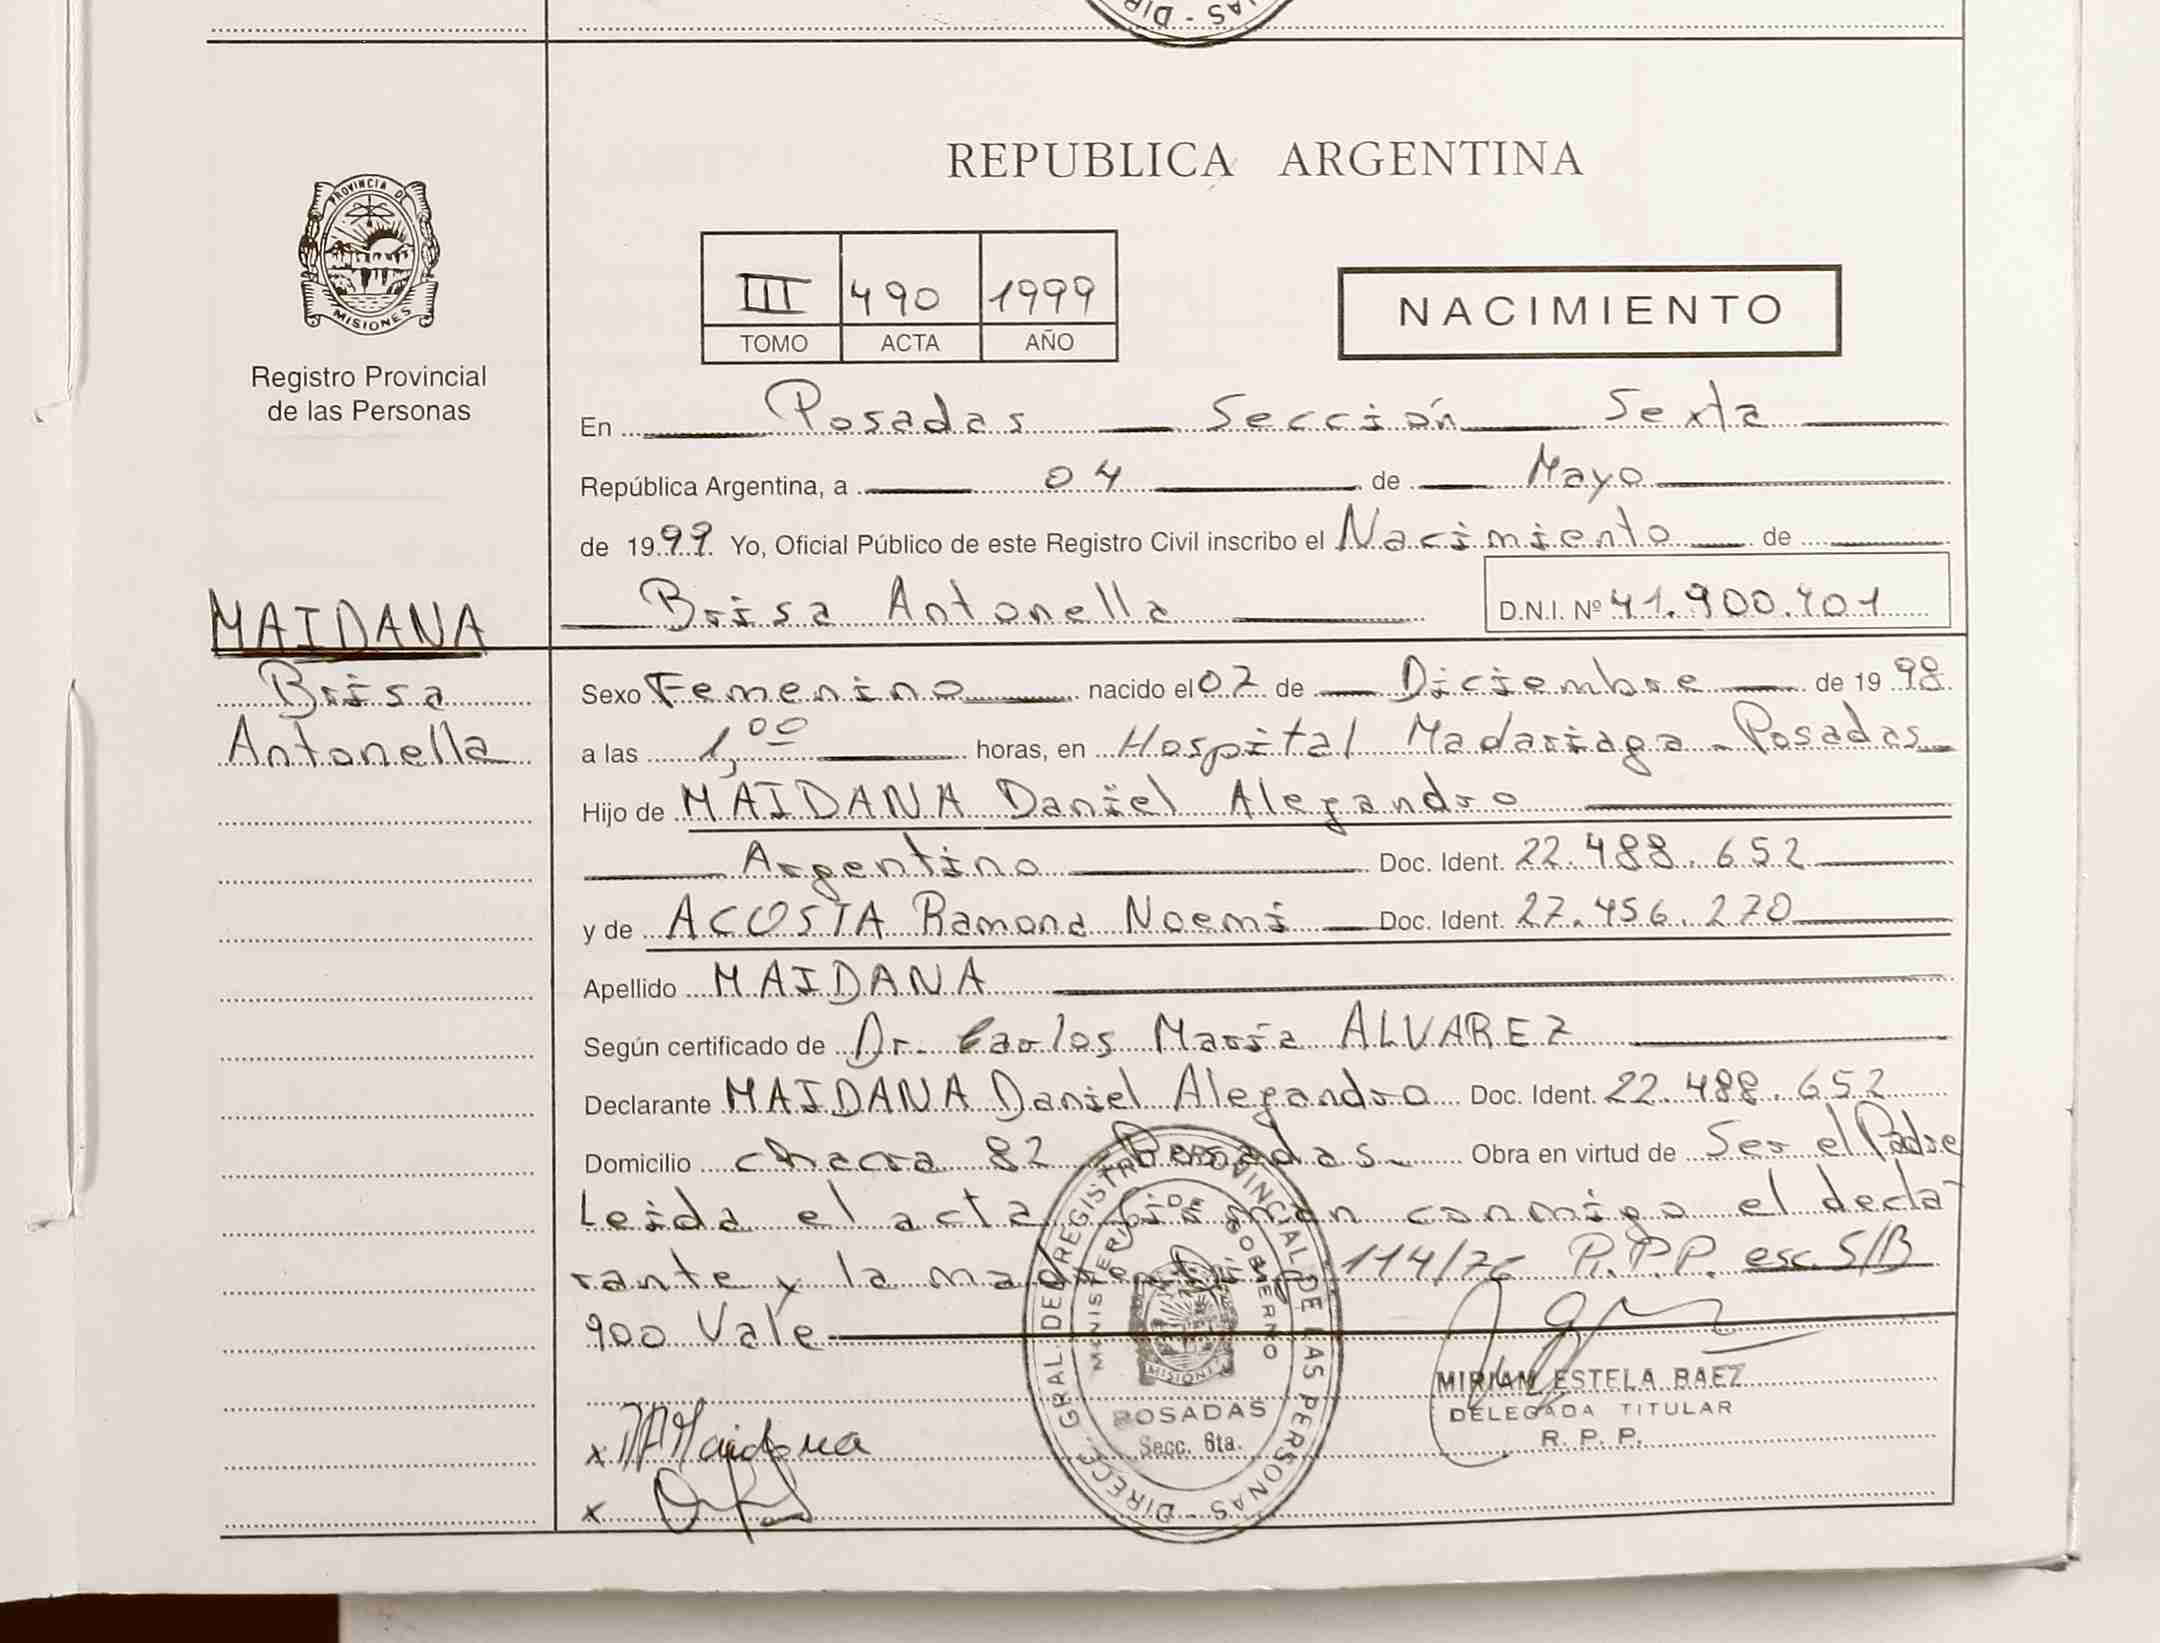 DIRE - NAS
REPUBLICA ARGENTINA
PROVINCIA DE
MISIONES
Registro Provincial
de las Personas
III 490 1999
TOMO ACTA AÑO
NACIMIENTO
En Posadas Sección Sexta
República Argentina, a 04 de Mayo
de 1999 Yo, Oficial Público de este Registro Civil inscribo el Nacimiento de
Brisa Antonella D.N.I. Nº 41.900.401
MAIDANA
Brisa
Antonella
Sexo Femenino nacido el 07 de Diciembre de 1998
a las 1,00 horas, en Hospital Madariaga - Posadas
Hijo de MAIDANA Daniel Alegandro
Argentino Doc. Ident. 22.488.652
y de ACOSTA Ramona Noemi Doc. Ident. 27.456.270
Apellido MAIDANA
Según certificado de Dr. Carlos María ALVAREZ
Declarante MAIDANA Daniel Alegandro Doc. Ident. 22.488.652
Domicilio chacra 82 Posadas. Obra en virtud de Ser el Padre
Leida el acta firman conmigo el decla-
rante y la madre 114/76 R.P.P. esc. S/B
900 Vale
DIRECC. GRAL. DEL REGISTRO PROVINCIAL DE LAS PERSONAS -
MINISTERIO DE GOBIERNO
MISIONES
POSADAS
Secc. 6ta.
MIRIAM ESTELA BAEZ
DELEGADA TITULAR
R. P. P.
x Maidana
x